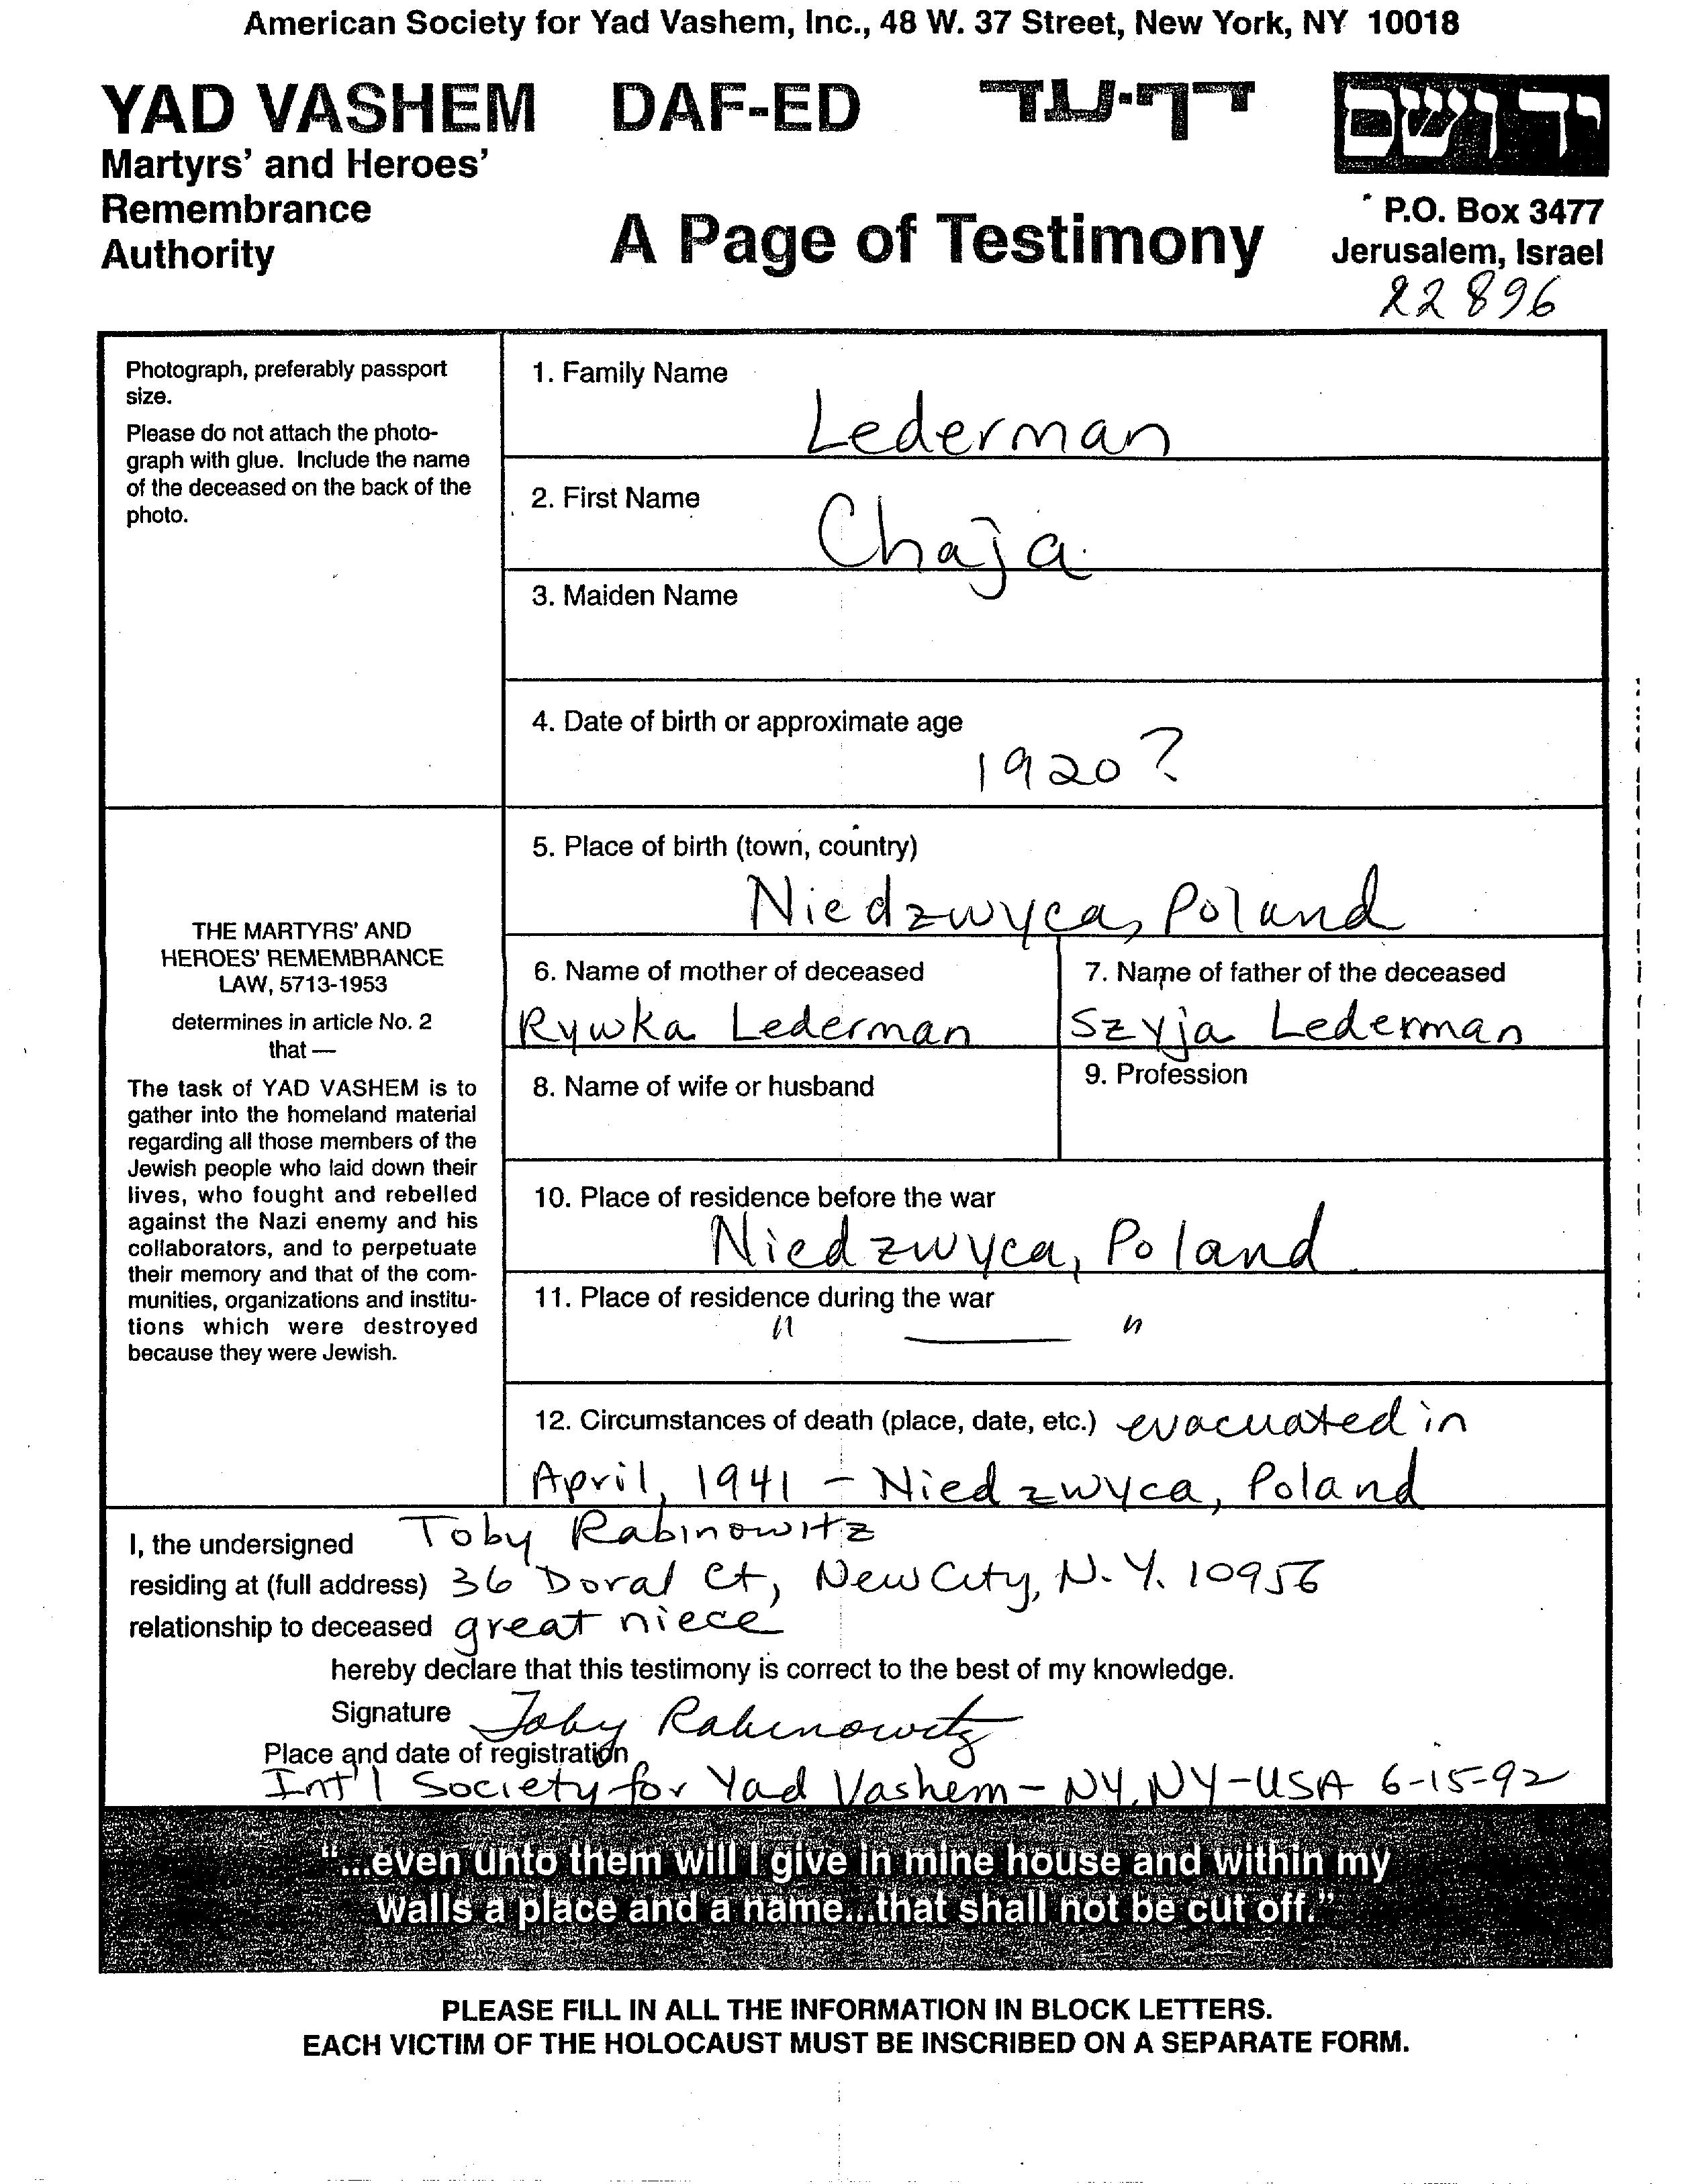 American Society for Yad Vashem, Inc., 48 W. 37 Street, New York, NY 10018
YAD VASHEM DAF-ED דף-עד יד ושם
Martyrs' and Heroes'
Remembrance
Authority
A Page of Testimony
P.O. Box 3477
Jerusalem, Israel
22896
Photograph, preferably passport
size.
Please do not attach the photo-
graph with glue. Include the name
of the deceased on the back of the
photo.
1. Family Name
Lederman
2. First Name
Chaja
3. Maiden Name
4. Date of birth or approximate age
1920?
THE MARTYRS' AND
HEROES' REMEMBRANCE
LAW, 5713-1953
determines in article No. 2
that —
The task of YAD VASHEM is to
gather into the homeland material
regarding all those members of the
Jewish people who laid down their
lives, who fought and rebelled
against the Nazi enemy and his
collaborators, and to perpetuate
their memory and that of the com-
munities, organizations and institu-
tions which were destroyed
because they were Jewish.
5. Place of birth (town, country)
Niedzwyca, Poland
6. Name of mother of deceased
Rywka Lederman
7. Name of father of the deceased
Szyja Lederman
8. Name of wife or husband
9. Profession
10. Place of residence before the war
Niedzwyca, Poland
11. Place of residence during the war
" — "
12. Circumstances of death (place, date, etc.) evacuated in
April, 1941 - Niedzwyca, Poland
I, the undersigned Toby Rabinowitz
residing at (full address) 36 Doral Ct, New City, N.Y. 10956
relationship to deceased great niece
hereby declare that this testimony is correct to the best of my knowledge.
Signature Toby Rabinowitz
Place and date of registration
Int'l Society for Yad Vashem - NY, NY - USA 6-15-92
"...even unto them will I give in mine house and within my
walls a place and a name...that shall not be cut off."
PLEASE FILL IN ALL THE INFORMATION IN BLOCK LETTERS.
EACH VICTIM OF THE HOLOCAUST MUST BE INSCRIBED ON A SEPARATE FORM.